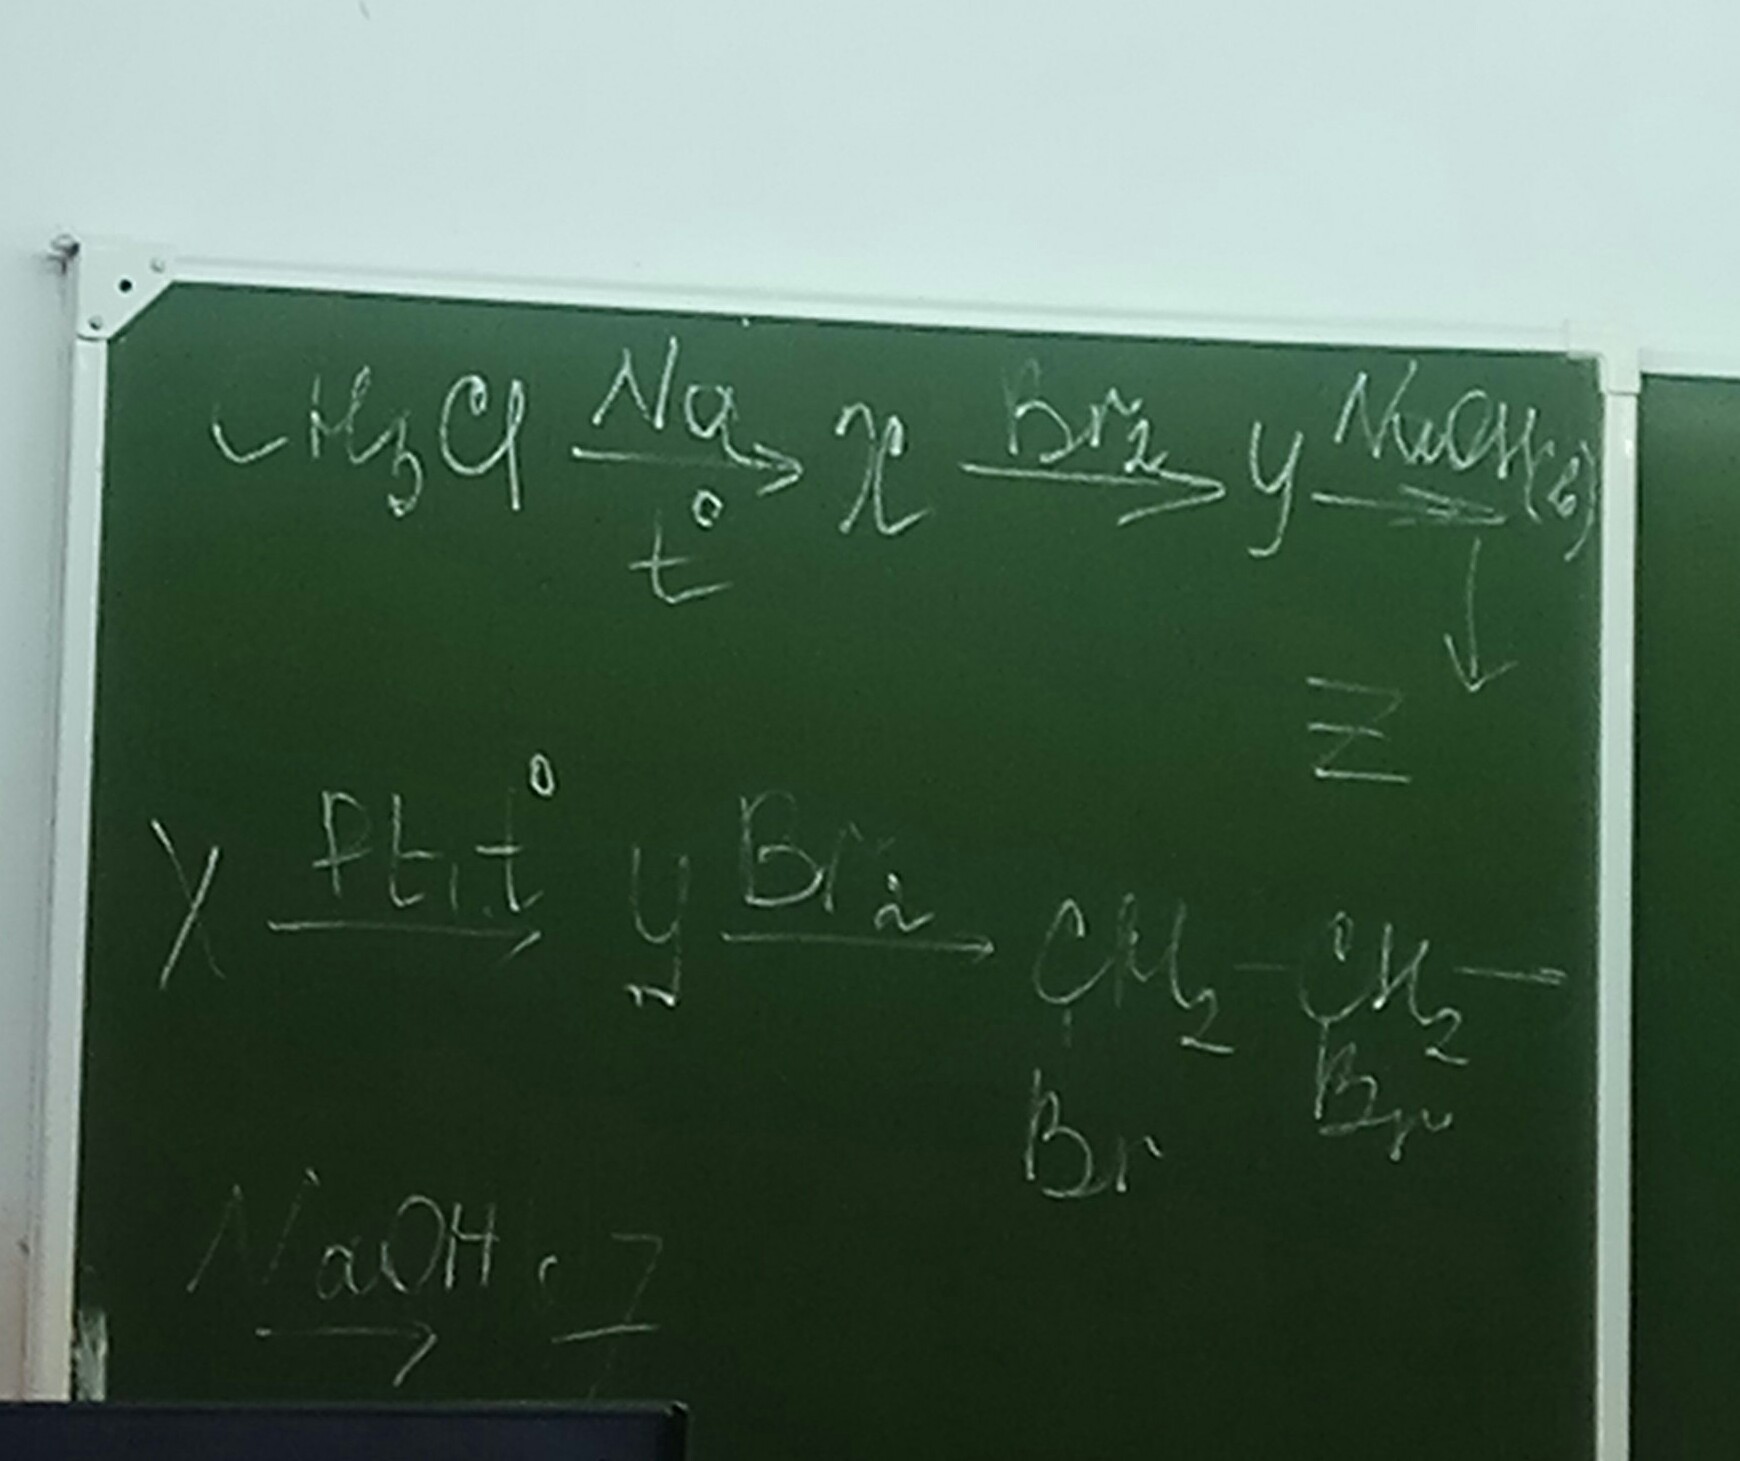 CH₃Cl —Na, t°→ X —Br₂→ y —NaOH(в)→
↓
Z
X —Pt, t°→ y —Br₂→ CH₂–CH₂–
Br Br
NaOH → Z